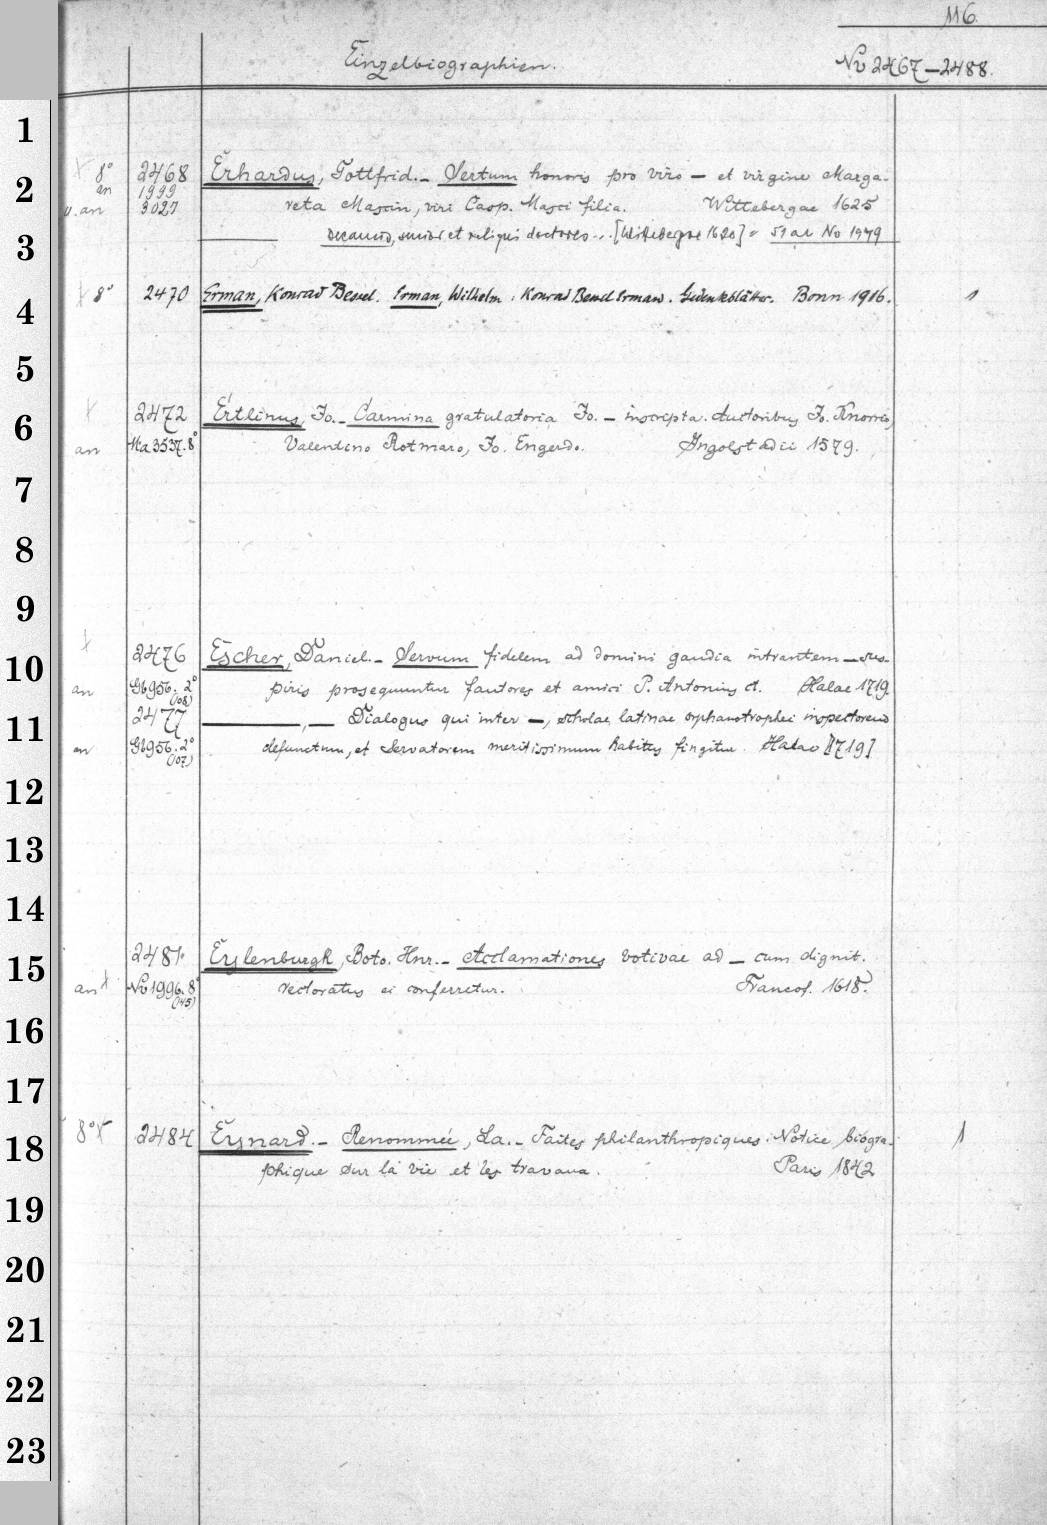 116.
Einzelbiographien. No 2467—2488.
1
2
3
4
5
6
7
8
9
10
11
12
13
14
15
16
17
18
19
20
21
22
23
8° 2468 Erhardus, Gottfrid.— Sertum honoris pro viro — et virgine Marga-
an 1999
v. an 3027 reta Mascin, viri Casp. Masci filia. Wittebergae 1625
Decanus, senior et reliqui doctores... [Wittebergae 1620] = 51 an No 1979
8° 2470 Erman, Konrad Besel. Erman, Wilhelm: Konrad Besel Erman. Gedenkblätter. Bonn 1916. 1
2472 Ertlinus, Jo.— Carmina gratulatoria Jo.— inscripta. Auctoribus Jo. Knorris,
an Ma 3537. 8° Valentino Rotmaro, Jo. Engerdo. Ingolstadii 1579.
2476 Escher, Daniel.— Servum fidelem ad domini gaudia intrantem — sus-
an Gb 956. 2° (08) piris prosequuntur fautores et amici P. Antonius et. Halae 1719.
2477 ———,— Dialogus qui inter —, scholae latinae orphanotrophei inspectorem
an Gb 956. 2° (07) defunctum, et Servatorem meritissimum habitus fingitur. Halae [1719]
2481. Eylenburgk, Boto. Hnr.— Acclamationes votivae ad — cum dignit.
an No 1996. 8° (145) rectoratus ei conferretur. Francof. 1618.
8° 2484 Eynard.— Renommée, La.— Faites philanthropiques: Notice biogra- 1
phique sur la vie et les travaux. Paris 1842